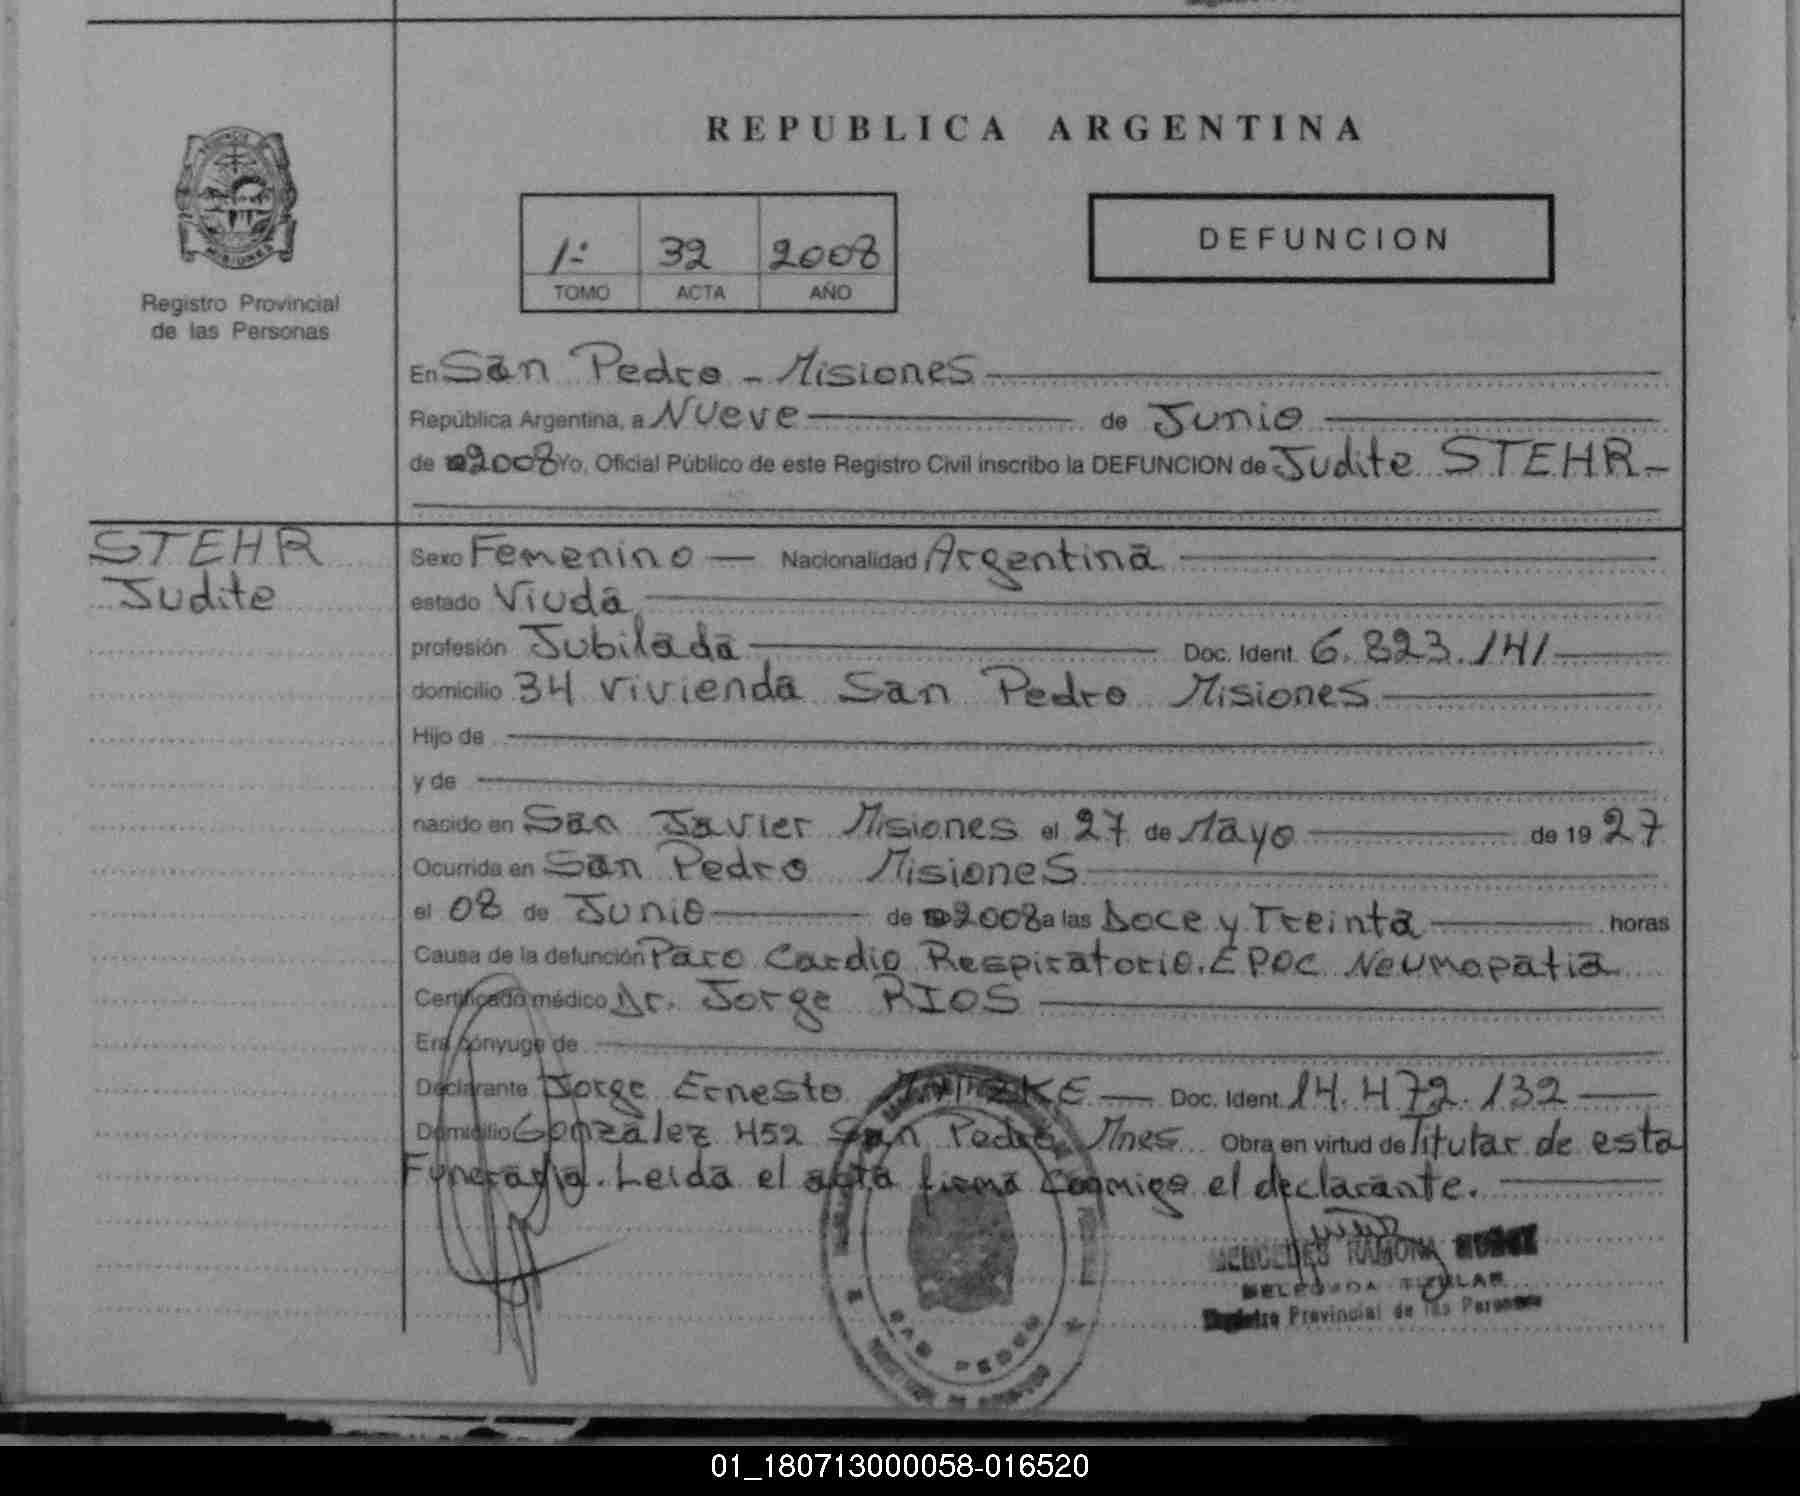 REPUBLICA ARGENTINA
MISIONES
Registro Provincial
de las Personas
1º 32 2008
TOMO ACTA AÑO
DEFUNCION
En San Pedro - Misiones
República Argentina, a Nueve de Junio
de 2008 Yo, Oficial Público de este Registro Civil inscribo la DEFUNCION de Judite STEHR
STEHR
Judite
Sexo Femenino Nacionalidad Argentina
estado Viuda
profesión Jubilada Doc. Ident. 6.823.141
domicilio 34 vivienda San Pedro Misiones
Hijo de
y de
nacido en San Javier Misiones el 27 de Mayo de 19 27
Ocurrida en San Pedro Misiones
el 08 de Junio de 2008 a las Doce y Treinta horas
Causa de la defunción Paro Cardio Respiratorio. EPOC Neumopatia
Certificado médico Dr. Jorge RIOS
Era cónyuge de
Declarante Jorge Ernesto Doc. Ident. 14.472.132
Domicilio González 452 San Pedro Mnes Obra en virtud de Titular de esta
Funeraria. Leida el acta firma conmigo el declarante.
MERCEDES RAMONA
DELEGADA TITULAR
Registro Provincial de las Personas
SAN PEDRO
01_180713000058-016520